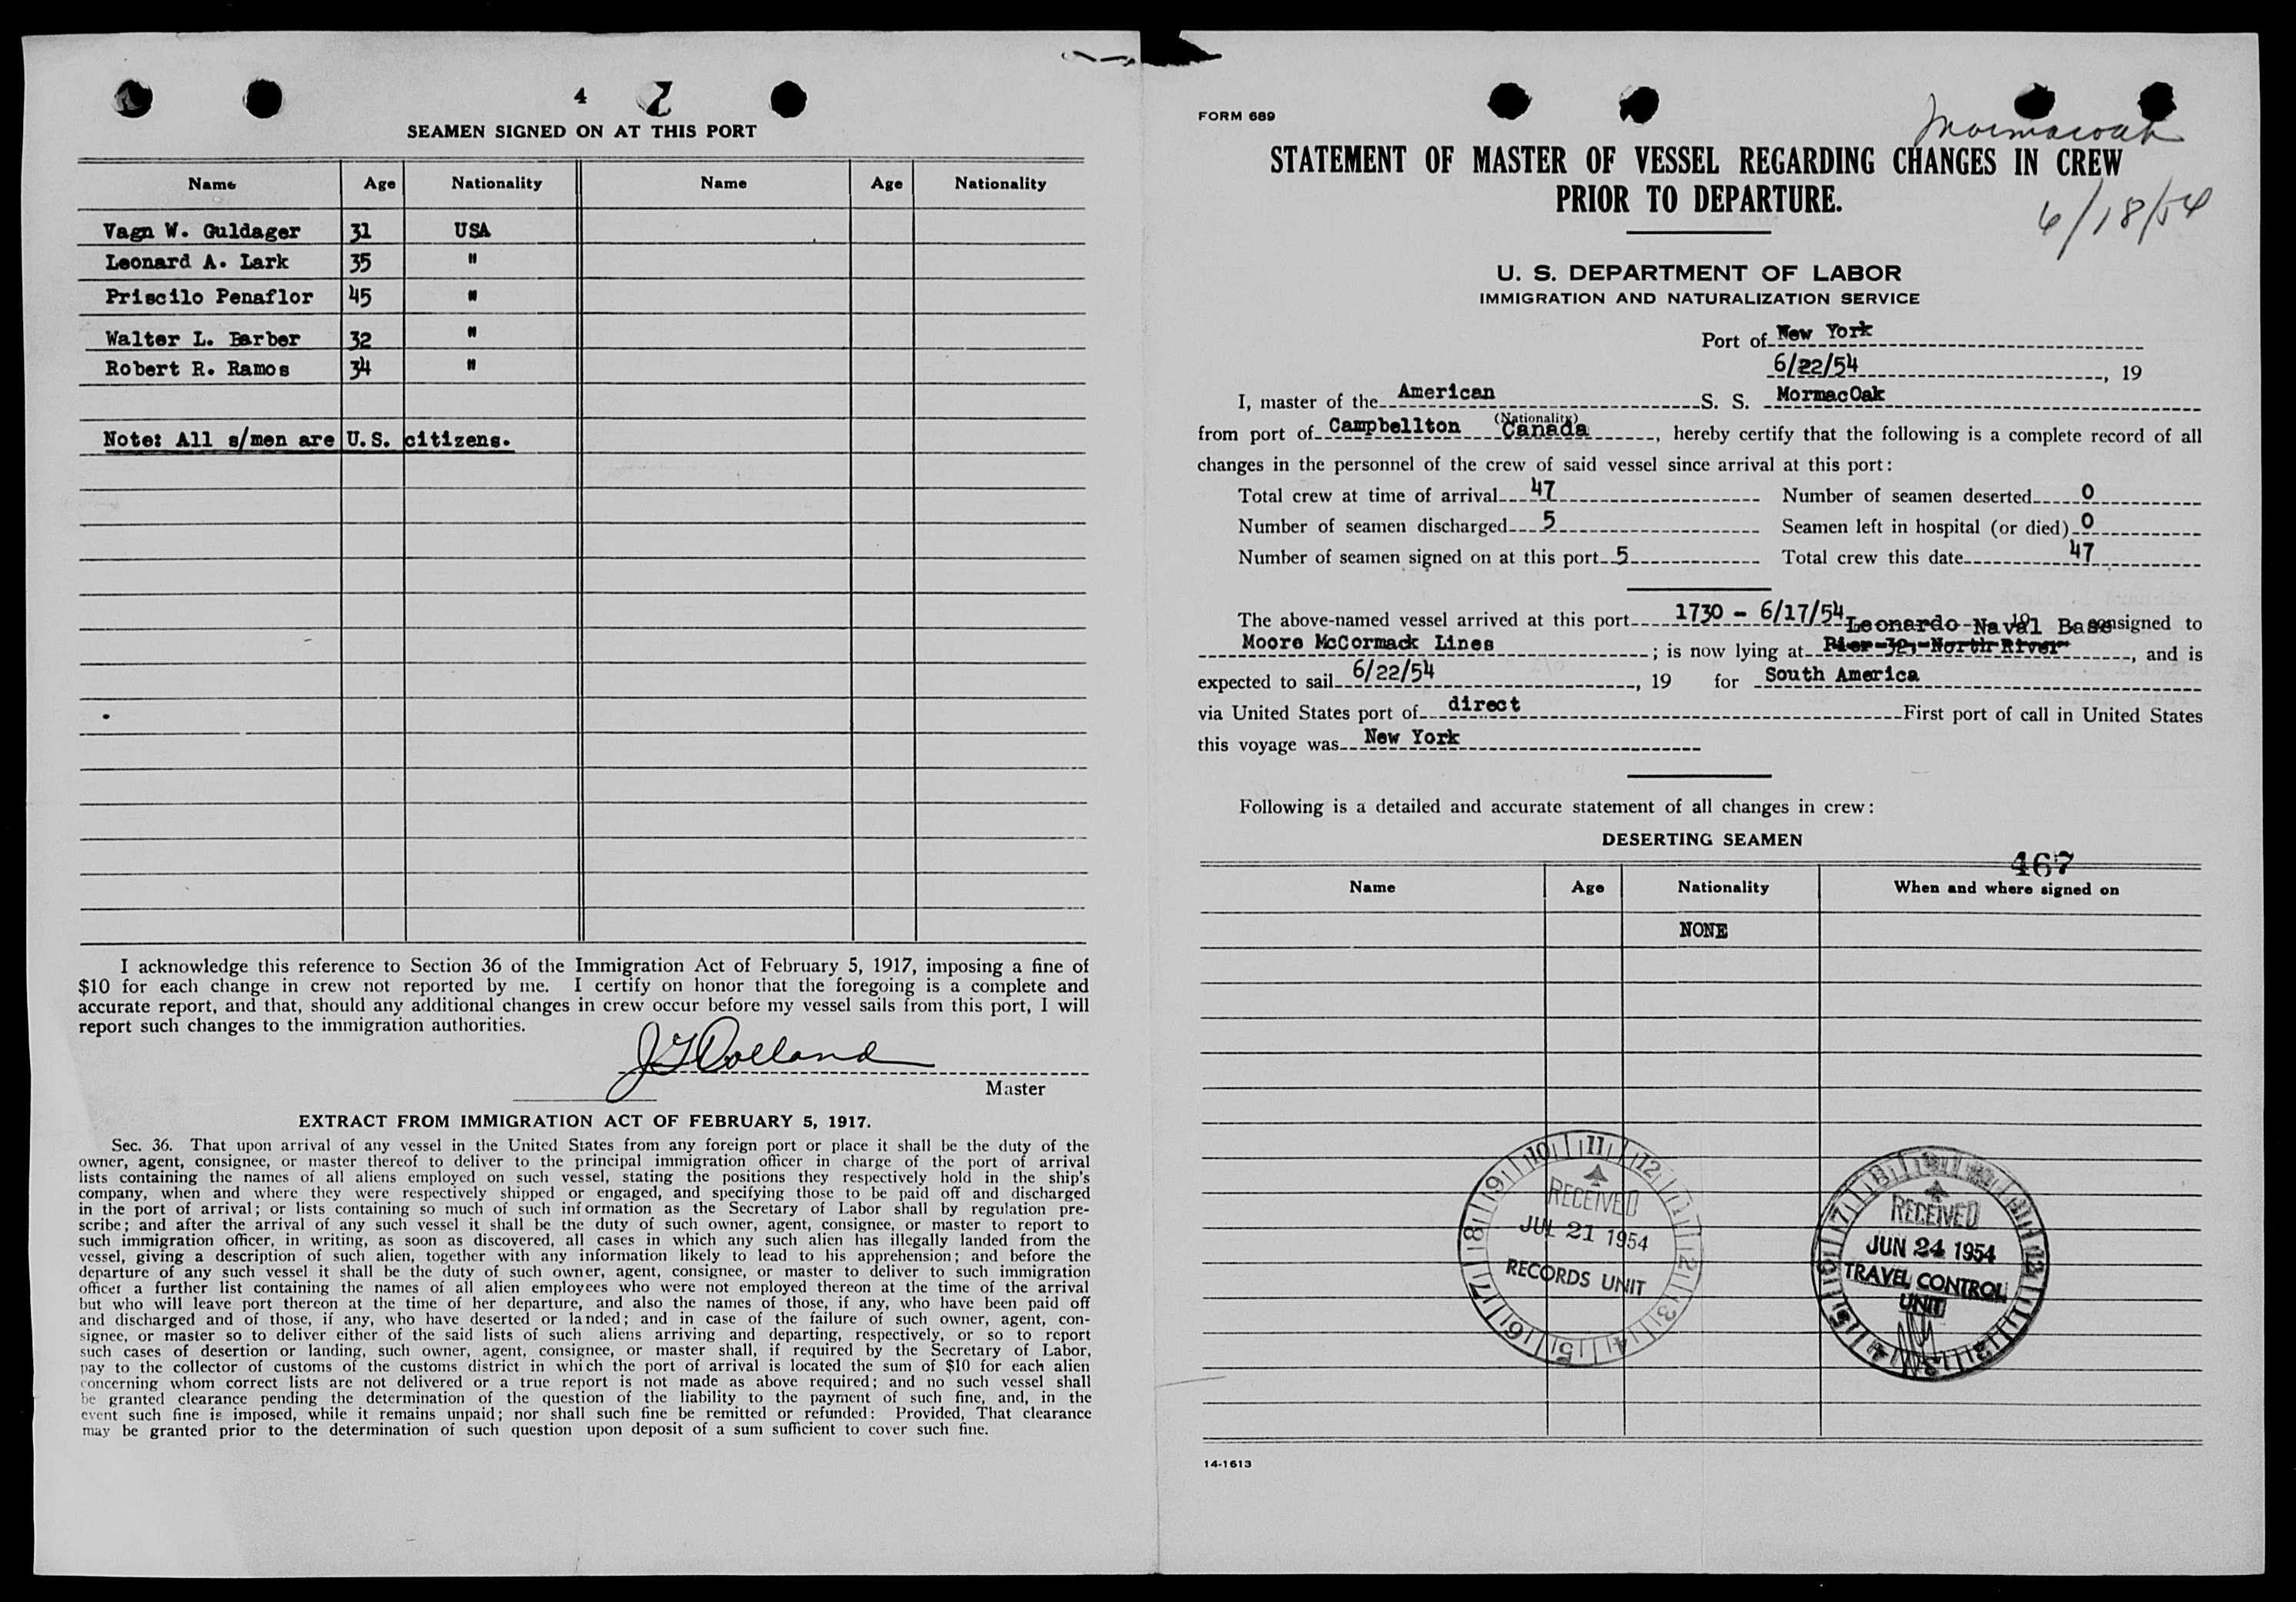 4
SEAMEN SIGNED ON AT THIS PORT
Name Age Nationality Name Age Nationality
Vagn W. Guldager 31 USA
Leonard A. Lark 35 "
Priscilo Penaflor 45 "
Walter L. Barber 32 "
Robert R. Ramos 34 "
Note: All s/men are U.S. citizens.
I acknowledge this reference to Section 36 of the Immigration Act of February 5, 1917, imposing a fine of
$10 for each change in crew not reported by me. I certify on honor that the foregoing is a complete and
accurate report, and that, should any additional changes in crew occur before my vessel sails from this port, I will
report such changes to the immigration authorities.
Master
EXTRACT FROM IMMIGRATION ACT OF FEBRUARY 5, 1917.
Sec. 36. That upon arrival of any vessel in the United States from any foreign port or place it shall be the duty of the
owner, agent, consignee, or master thereof to deliver to the principal immigration officer in charge of the port of arrival
lists containing the names of all aliens employed on such vessel, stating the positions they respectively hold in the ship's
company, when and where they were respectively shipped or engaged, and specifying those to be paid off and discharged
in the port of arrival; or lists containing so much of such information as the Secretary of Labor shall by regulation pre-
scribe; and after the arrival of any such vessel it shall be the duty of such owner, agent, consignee, or master to report to
such immigration officer, in writing, as soon as discovered, all cases in which any such alien has illegally landed from the
vessel, giving a description of such alien, together with any information likely to lead to his apprehension; and before the
departure of any such vessel it shall be the duty of such owner, agent, consignee, or master to deliver to such immigration
officer a further list containing the names of all alien employees who were not employed thereon at the time of the arrival
but who will leave port thereon at the time of her departure, and also the names of those, if any, who have been paid off
and discharged and of those, if any, who have deserted or landed; and in case of the failure of such owner, agent, con-
signee, or master so to deliver either of the said lists of such aliens arriving and departing, respectively, or so to report
such cases of desertion or landing, such owner, agent, consignee, or master shall, if required by the Secretary of Labor,
pay to the collector of customs of the customs district in which the port of arrival is located the sum of $10 for each alien
concerning whom correct lists are not delivered or a true report is not made as above required; and no such vessel shall
be granted clearance pending the determination of the question of the liability to the payment of such fine, and, in the
event such fine is imposed, while it remains unpaid; nor shall such fine be remitted or refunded: Provided, That clearance
may be granted prior to the determination of such question upon deposit of a sum sufficient to cover such fine.
FORM 689
Mormacoak
STATEMENT OF MASTER OF VESSEL REGARDING CHANGES IN CREW
PRIOR TO DEPARTURE.
6/18/54
U. S. DEPARTMENT OF LABOR
IMMIGRATION AND NATURALIZATION SERVICE
Port of New York
6/22/54, 19
I, master of the American S. S. MormacOak
(Nationality)
from port of Campbellton Canada, hereby certify that the following is a complete record of all
changes in the personnel of the crew of said vessel since arrival at this port:
Total crew at time of arrival 47 Number of seamen deserted 0
Number of seamen discharged 5 Seamen left in hospital (or died) 0
Number of seamen signed on at this port 5 Total crew this date 47
The above-named vessel arrived at this port 1730 - 6/17/54, 19 consigned to
Leonardo Naval Base
Moore McCormack Lines; is now lying at Pier 32, North River, and is
expected to sail 6/22/54, 19 for South America
via United States port of direct First port of call in United States
this voyage was New York
Following is a detailed and accurate statement of all changes in crew:
DESERTING SEAMEN
467
Name Age Nationality When and where signed on
NONE
RECEIVED
JUL 21 1954
RECORDS UNIT
RECEIVED
JUN 24 1954
TRAVEL CONTROL
UNIT
14-1613